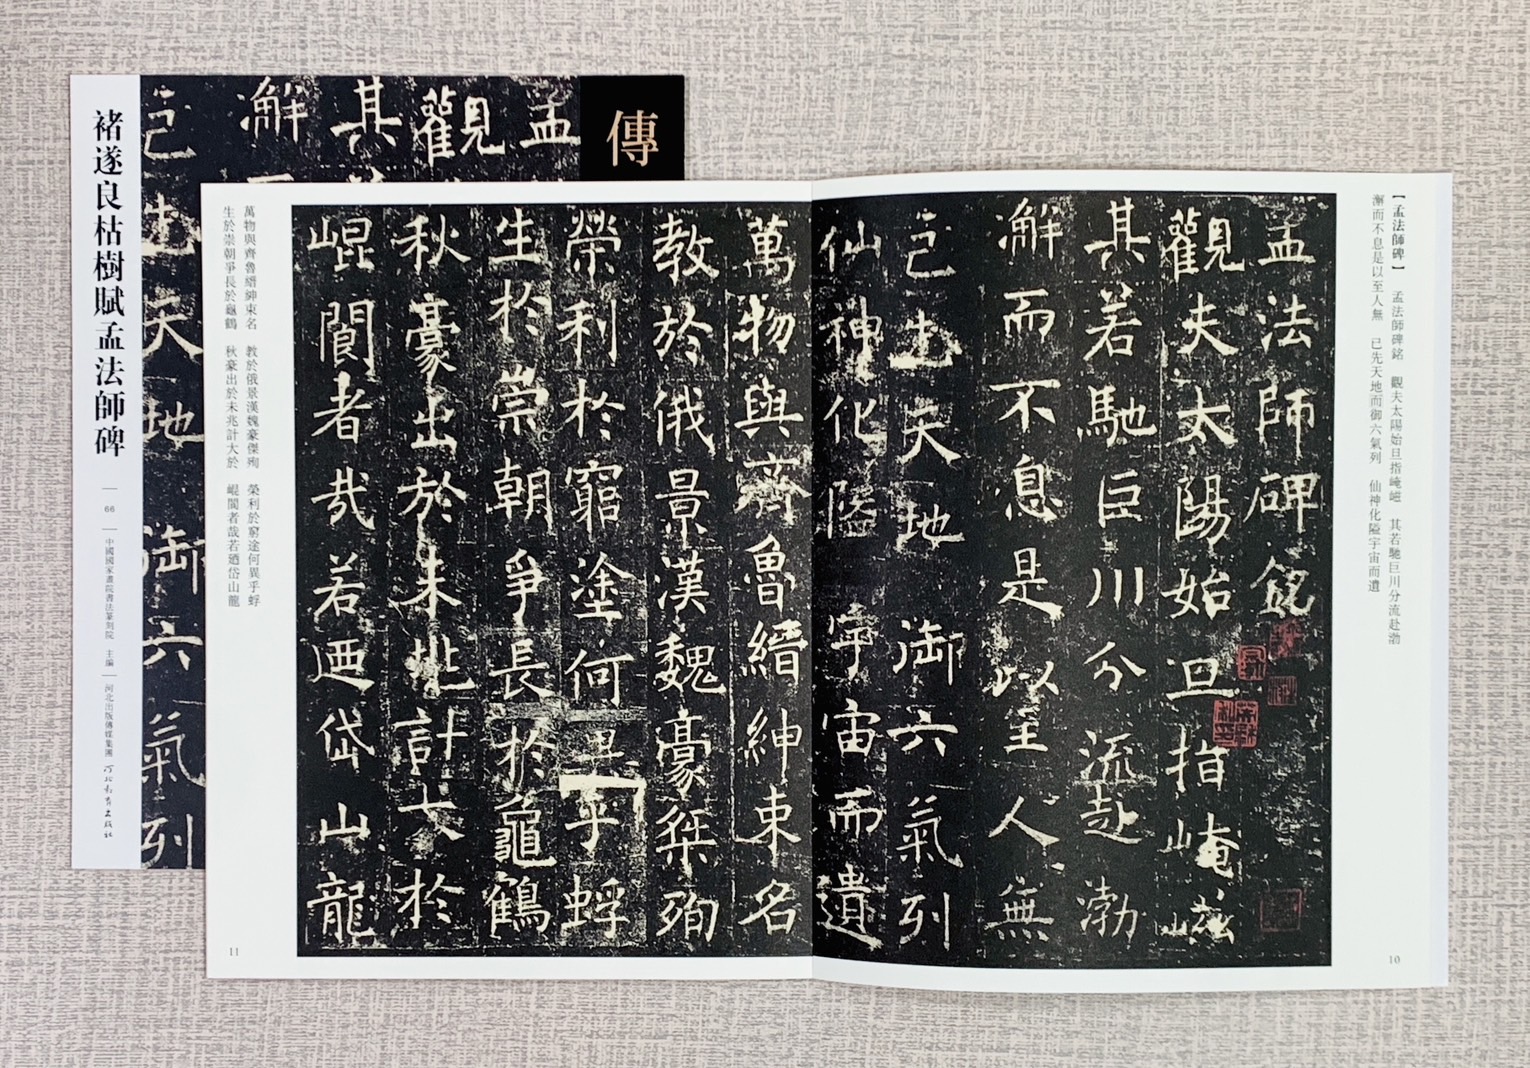 褚遂良枯樹賦孟法師碑
66
中國國家畫院書法篆刻院 主編
河北出版傳媒集團
河北教育出版社
傳
孟
觀
其
澥
已
先天地
御六氣列
【孟法師碑】 孟法師碑銘 觀夫太陽始旦指崦嵫 其若馳巨川分流赴渤
澥而不息是以至人無 已先天地而御六氣列 仙神化隘宇宙而遺
孟法師碑銘
觀夫太陽始旦指崦嵫
其若馳巨川分流赴渤
澥而不息是以至人無
已先天地 御六氣列
仙神化隘 宇宙而遺
10
萬物與齊魯縉紳束名
教於俄景漢魏豪桀殉
榮利於窮塗何異乎蜉
生於崇朝爭長於龜鶴
秋豪出於未兆計大於
崐閬者哉若迺岱山龍
萬物與齊魯縉紳束名 教於俄景漢魏豪傑殉 榮利於窮途何異乎蜉
生於崇朝爭長於龜鶴 秋豪出於未兆計大於 崐閬者哉若迺岱山龍
11